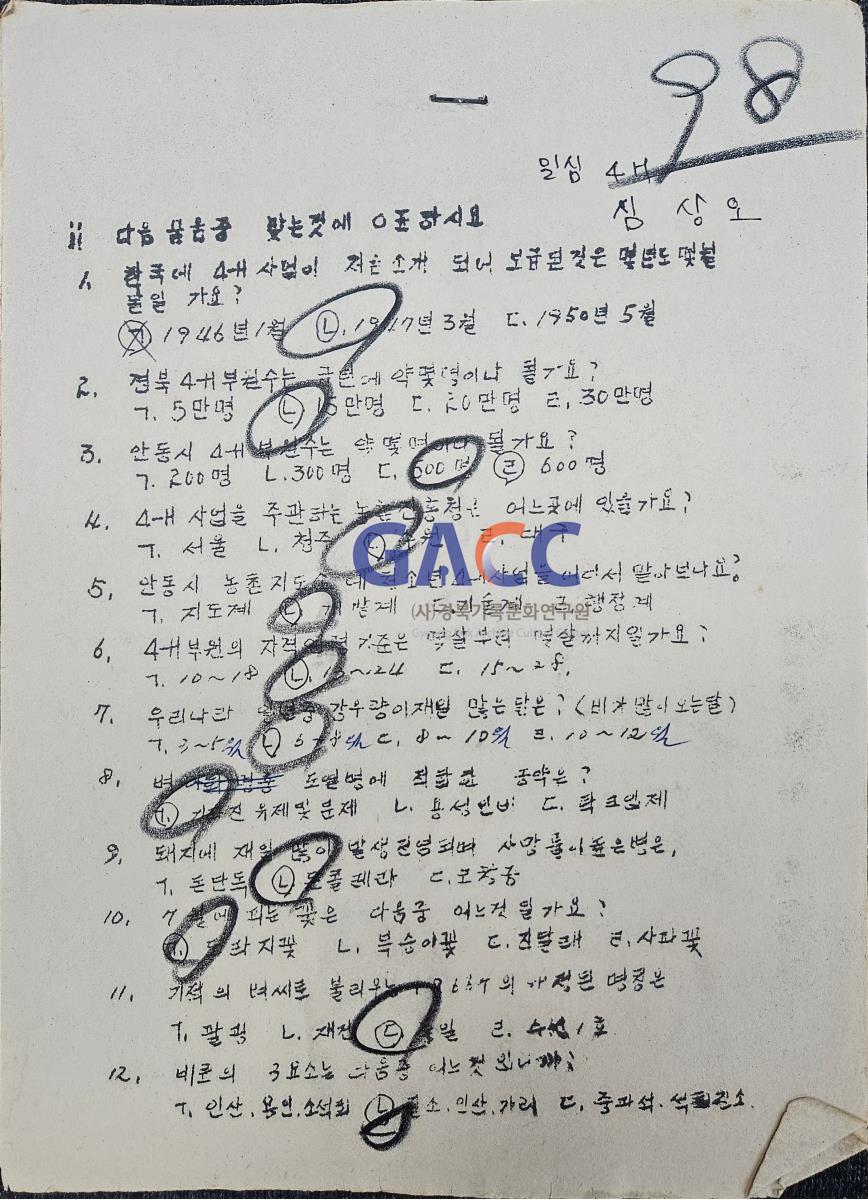 98
밀심 4H
심 상 오
다음 물음중 맞는것에 O표 하시요
1. 한국에 4-H 사업이 처음 소개 되어 보급된것은 몇년도 몇월
몇일 가요?
ㄱ 1946년 1월 ㄴ. 1947년 3월 ㄷ. 1950년 5월
2. 경북 4-H부원수는 금년에 약 몇명이나 될가요?
ㄱ. 5만명 ㄴ 15만명 ㄷ 20만명 ㄹ, 30만명
3. 안동시 4-H 부원수는 약 몇명이나 될가요?
ㄱ. 200명 ㄴ. 300명 ㄷ. 500명 ㄹ 600명
4. 4-H 사업을 주관하는 농촌진흥청은 어느곳에 있을가요?
ㄱ. 서울 ㄴ. 청주 ㄷ 수원 ㄹ. 대구
5. 안동시 농촌지도소에 청소년 4-H사업을 어디서 맡아보나요?
ㄱ. 지도계 ㄴ 개발계 ㄷ 기술계 ㄹ 행정계
GACC
(사)경북기록문화연구원
6. 4-H부원의 자격연령기준은 몇살부터 몇살까지일가요?
ㄱ. 10~18 ㄴ. 13~24 ㄷ. 15~28.
7. 우리나라 일년중 강우량이 재일 많은 달은? (비가 많이 오는달)
ㄱ. 3~5월 ㄴ 6~8월 ㄷ. 8~10월 ㄹ. 10~12월
8. 벼 도열병에 적합한 농약은?
ㄱ. 유제및분제 ㄴ. 용성인비 ㄷ. 파크엘제
9. 돼지에 재일 많이 발생전염되며 사망률이 높은병은,
ㄱ. 돈단독 ㄴ 돈콜레라 ㄷ.
10. 7월에 피는 꽃은 다음중 어느것 될가요?
ㄱ. 도라지꽃 ㄴ. 복숭아꽃 ㄷ. 진달래 ㄹ. 사과꽃
11. 기적의 벼씨로 불리우는 IR667의 개정된 명칭은
ㄱ. 팔굉 ㄴ. 재건 ㄷ 통일 ㄹ. 수원1호
12. 비료의 3요소는 다음중 어느것 입니까?
ㄱ. 인산. 용인. 소석회 ㄴ 질소. 인산. 가리 ㄷ. 중과석. 석회질소.